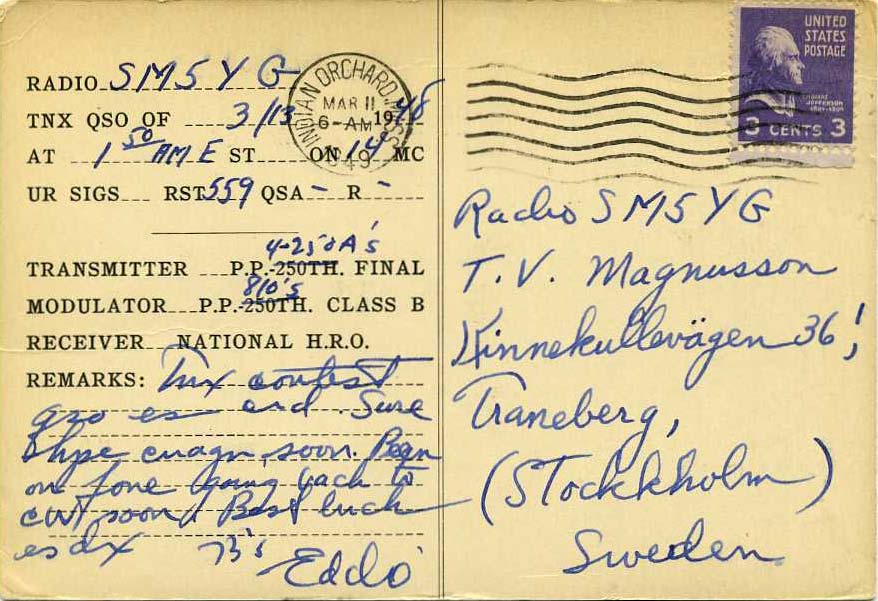 RADIO SM5YG
TNX QSO OF 3/13 1948
AT 1 50 AM E ST ON 14 MC
UR SIGS RST 559 QSA - R -
4-250A's
TRANSMITTER P.P.-250TH. FINAL
810's
MODULATOR P.P.-250TH. CLASS B
RECEIVER NATIONAL H.R.O.
REMARKS: Tnx contest
qso es crd. Sure
hpe cuagn, soon. Been
on fone going back to
CW soon! Best luck
es dx 73's
Eddo
INDIAN ORCHARD, MASS.
MAR 11
6-AM
1949
UNITED
STATES
POSTAGE
THOMAS
JEFFERSON
1801-1809
3 CENTS 3
Radio SM5YG
T.V. Magnusson
Kinnekullevägen 36,
Traneberg,
(STockkholm)
Sweden